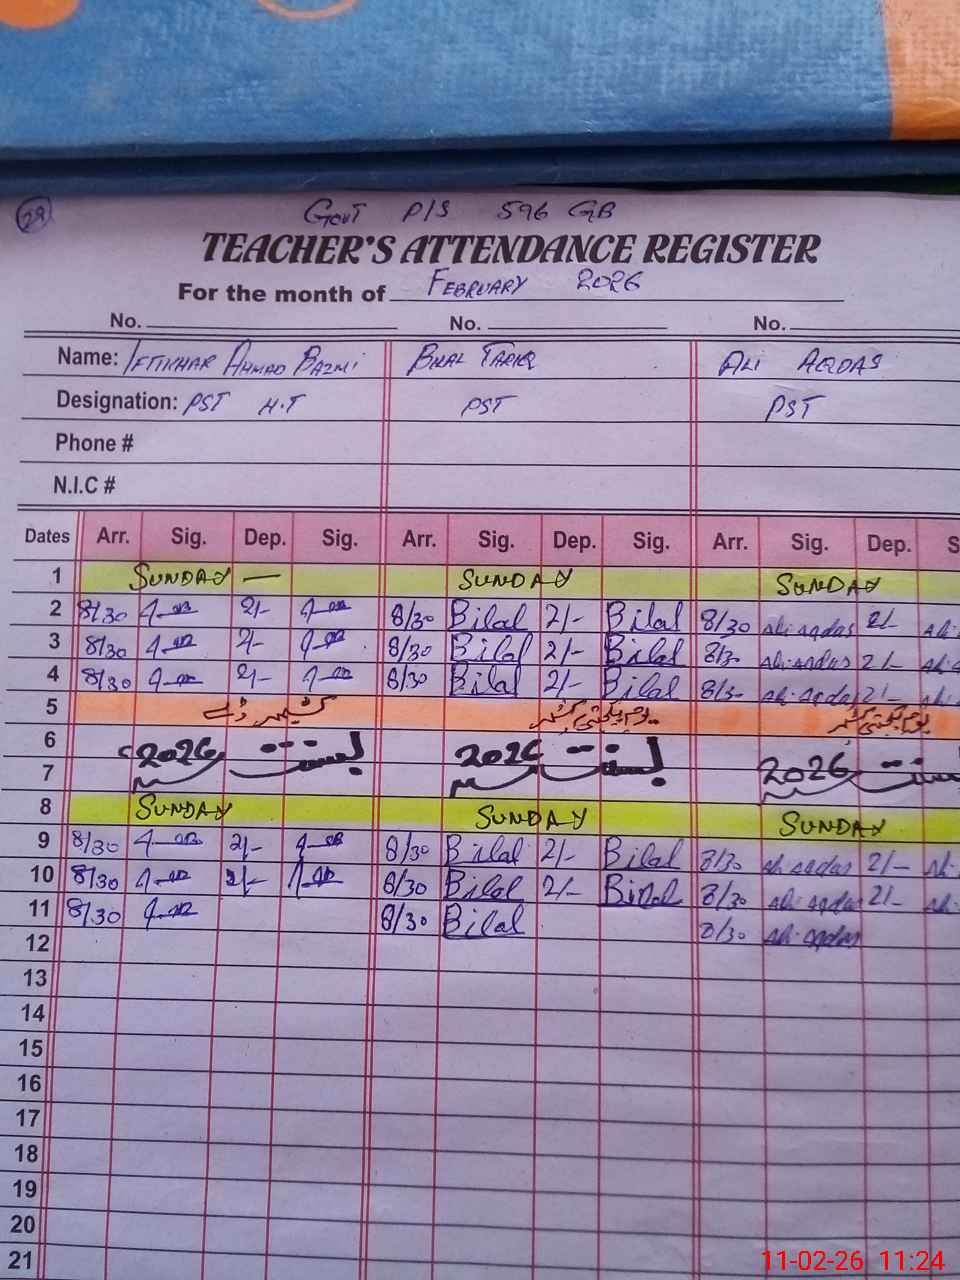 29
Govt P/S 596 GB
TEACHER'S ATTENDANCE REGISTER
For the month of February 2026
No. No. No.
Name: Iftikhar Ahmad Bazmi Bilal Tariq Ali Aqdas
Designation: PST H.T PST PST
Phone #
N.I.C #
Dates Arr. Sig. Dep. Sig. Arr. Sig. Dep. Sig. Arr. Sig. Dep. S
1 SUNDAY — SUNDAY SUNDAY
2 8/30 2/- 8/30 Bilal 2/- Bilal 8/30 Ali aqdas 2/- Ali
3 8/30 2/- 8/30 Bilal 2/- Bilal 8/30 Ali aqdas 2/- Ali
4 8/30 2/- 8/30 Bilal 2/- Bilal 8/30 Ali aqdas 2/- Ali
5 کشمیر ڈے یوم یکجہتی کشمیر یوم یکجہتی کشمیر
6 بسنت 2026 بسنت 2026 بسنت 2026
7
8 SUNDAY SUNDAY SUNDAY
9 8/30 2/- 8/30 Bilal 2/- Bilal 8/30 Ali aqdas 2/- Ali
10 8/30 2/- 8/30 Bilal 2/- Bilal 8/30 Ali aqdas 2/- Ali
11 8/30 8/30 Bilal 8/30 Ali aqdas
12
13
14
15
16
17
18
19
20
21
11-02-26 11:24